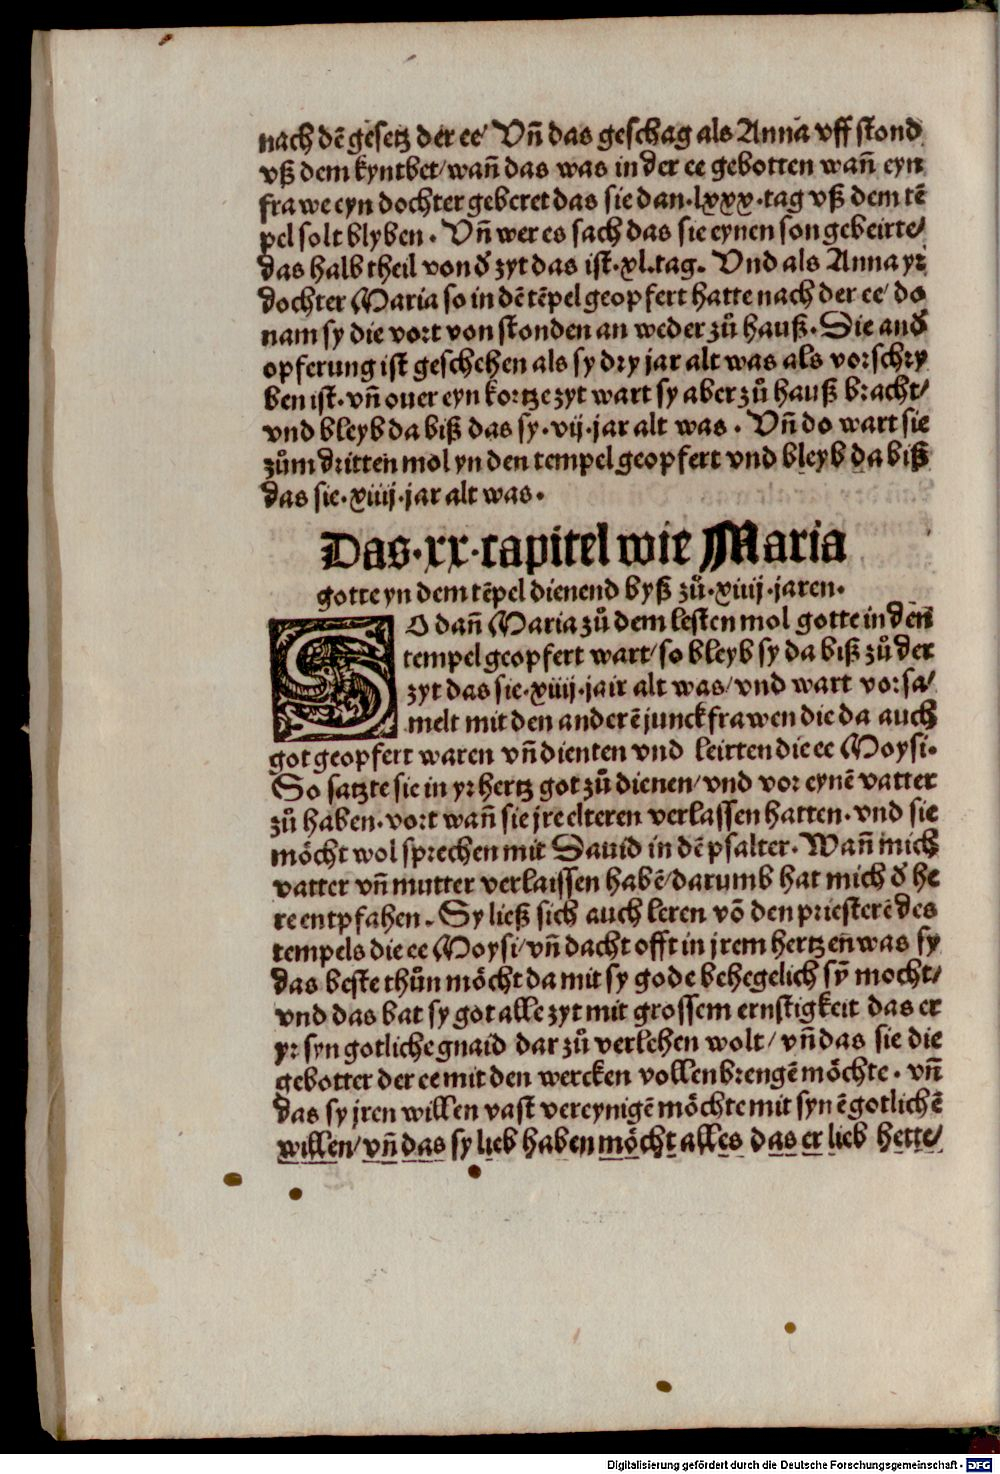 nach dē gesetz der ee/ Vñ das geschag als Anna vff stond
vß dem kyntbet/wañ das was in der ee gebotten wañ eyn
frawe eyn dochter geberet das sie dan·lxxx·tag vß dem tē
pel solt blyben· Vñ wer es sach das sie eynen son gebeirte/
das halb theil von d̄ zyt das ist·xl.tag. Vnd als Anna yr
dochter Maria so in dē tēpel geopfert hatte nach der ee/ do
nam sy die vort von stonden an weder zů hauß· Die and̄
opferung ist geschehen als sy dry jar alt was als vorschry
ben ist·vñ ouer eyn kortze zyt wart sy aber zů hauß bracht/
vnd bleyb da biß das sy·vij·jar alt was· Vñ do wart sie
zům dritten mol yn den tempel geopfert vnd bleyb da biß
das sie·xiiij·jar alt was·
Das·xx·capitel wie Maria
gotte yn dem tēpel dienend byß zů·xiiij·jaren·
SO dañ Maria zů dem lesten mol gotte in den
tempel geopfert wart/so bleyb sy da biß zů der
zyt das sie·xiiij·jair alt was/vnd wart vorsa/
melt mit den anderē junckfrawen die da auch
got geopfert waren vñ dienten vnd leirten die ee Moysi·
So satzte sie in yr hertz got zů dienen/vnd vor eynē vatter
zů haben·vort wañ sie jre elteren verlassen hatten·vnd sie
möcht wol sprechen mit Dauid in dē psalter· Wañ mich
vatter vñ mutter verlaissen habē/darumb hat mich d̄ he
re entpfahen· Sy ließ sich auch leren vō den priesterē des
tempels die ee Moysi/vñ dacht offt in jrem hertzen was sy
das beste thůn möcht da mit sy gode behegelich sȳ mocht/
vnd das bat sy got alle zyt mit grossem ernstigkeit das er
yr syn gotliche gnaid dar zů verlehen wolt/ vñ das sie die
gebotter der ee mit den wercken vollenbrengē möchte· vñ
das sy jren willen vast vereynigē möchte mit synē gotlichē
willen/vñ das sy lieb haben möcht alles das er lieb hette/
Digitalisierung gefördert durch die Deutsche Forschungsgemeinschaft - DFG